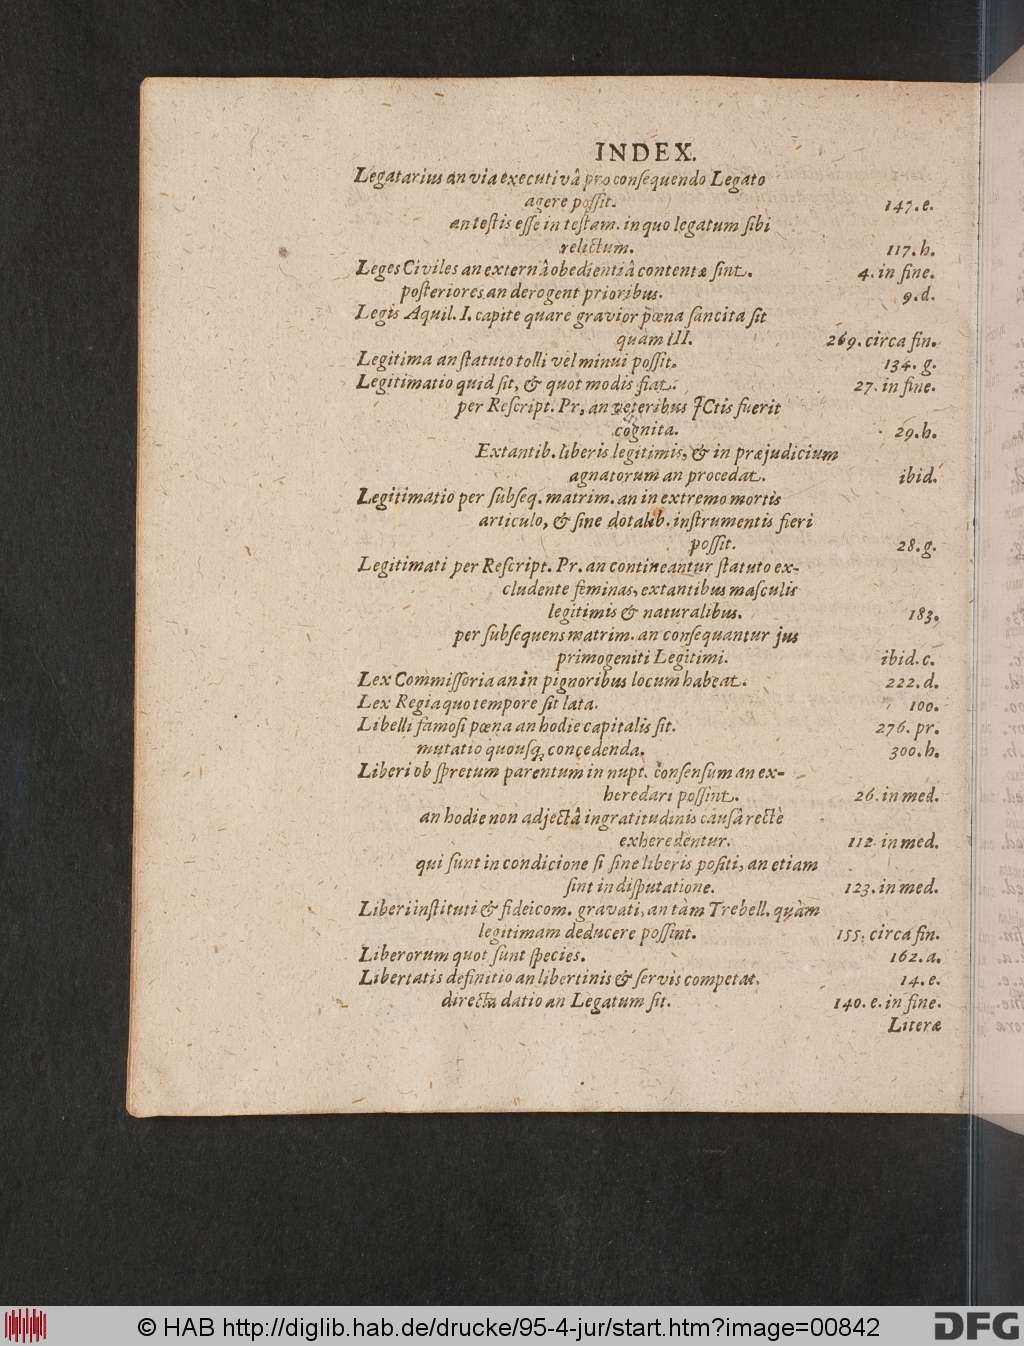 INDEX.
Legatarius an via executivâ pro consequendo Legato
agere possit. 147. e.
an testis esse in testam. in quo legatum sibi
relictum. 117. h.
Leges Civiles an externâ obedientiâ contentæ sint. 4. in fine.
posteriores an derogent prioribus. 9. d.
Legis Aquil. I. capite quare gravior pœna sancita sit
quàm III. 269. circa fin.
Legitima an statuto tolli vel minui possit. 134. g.
Legitimatio quid sit, & quot modis fiat. 27. in fine.
per Rescript. Pr, an veteribus JCtis fuerit
cognita. 29. h.
Extantib. liberis legitimis, & in præjudicium
agnatorum an procedat. ibid.
Legitimatio per subseq. matrim. an in extremo mortis
articulo, & sine dotalib. instrumentis fieri
possit. 28. g.
Legitimati per Rescript. Pr. an contineantur statuto ex-
cludente feminas, extantibus masculis
legitimis & naturalibus. 183.
per subsequens matrim. an consequantur jus
primogeniti Legitimi. ibid. c.
Lex Commissoria an in pignoribus locum habeat. 222. d.
Lex Regia quo tempore sit lata. 100.
Libelli famosi pœna an hodie capitalis sit. 276. pr.
mutatio quousq; concedenda. 300. h.
Liberi ob spretum parentum in nupt. consensum an ex-
heredari possint. 26. in med.
an hodie non adjectâ ingratitudinis causâ rectè
exheredentur. 112. in med.
qui sunt in condicione si sine liberis positi, an etiam
sint in disputatione. 123. in med.
Liberi instituti & fideicom. gravati, an tàm Trebell. quàm
legitimam deducere possint. 155. circa fin.
Liberorum quot sunt species. 162. a.
Libertatis definitio an libertinis & servis competat. 14. e.
directa datio an Legatum sit. 140. e. in fine.
Literæ
© HAB http://diglib.hab.de/drucke/95-4-jur/start.htm?image=00842
DFG